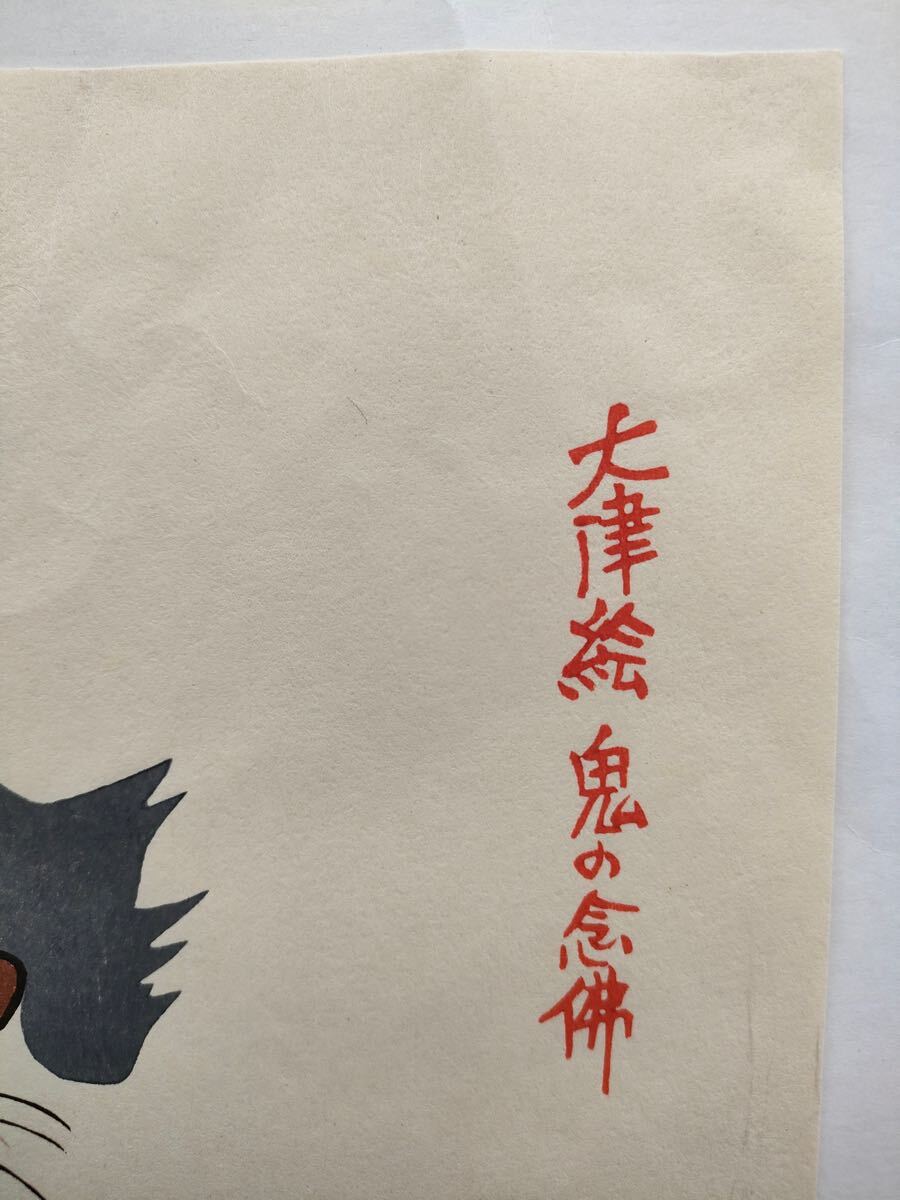 大津絵 鬼の念佛